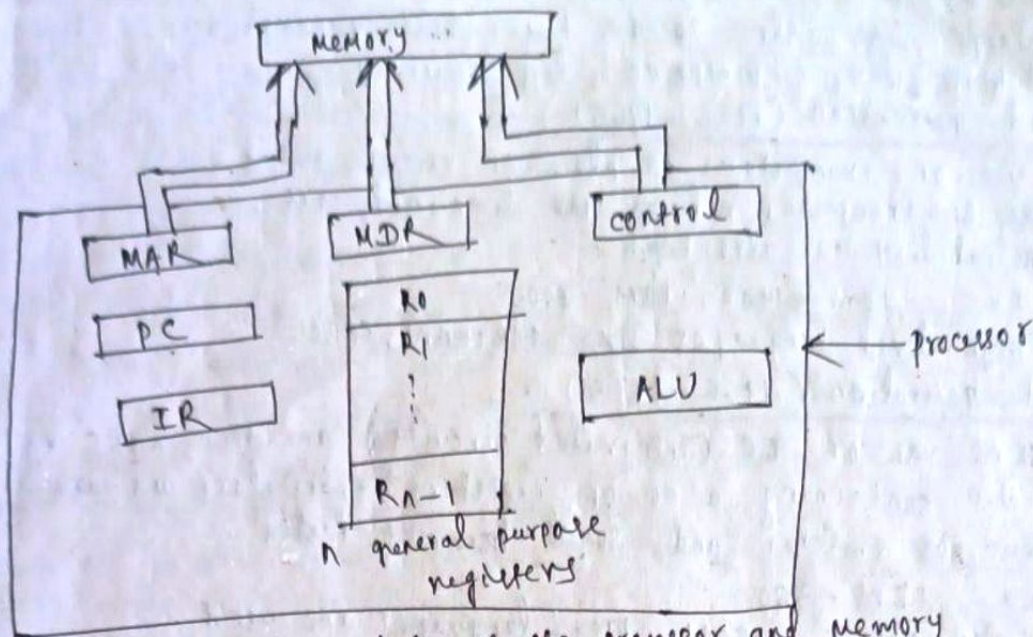 Memory
MAR
MDR
control
PC
R0
R1
IR
ALU
processor
Rn-1
n general purpose
registers
processor and memory